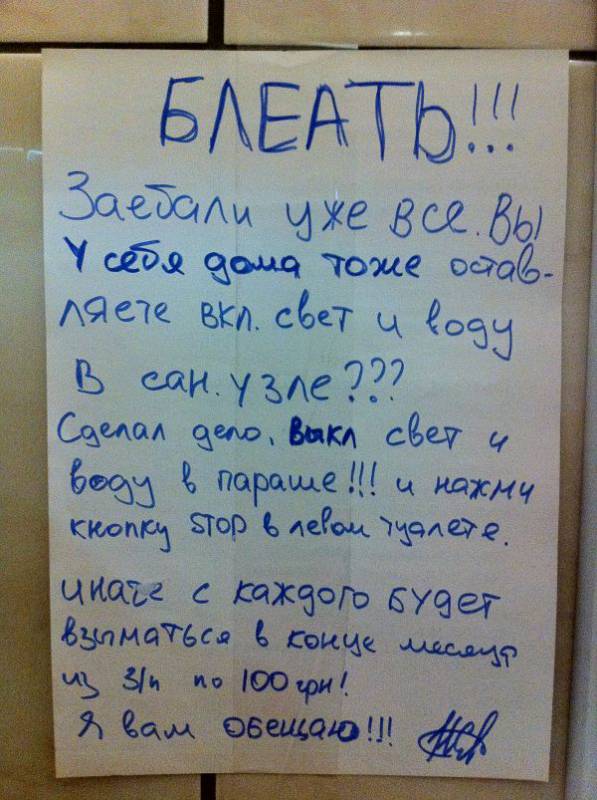 БЛЕАТЬ!!!
Заебали уже все. Вы
У себя дома тоже остав-
ляете вкл. свет и воду
В сан. узле???
Сделал дело, выкл свет и
воду в параше!!! и нажми
кнопку STOP в левом туалете.
иначе с каждого будет
взыматься в конце месяца
из З/п по 100 грн!
Я вам обещаю!!!